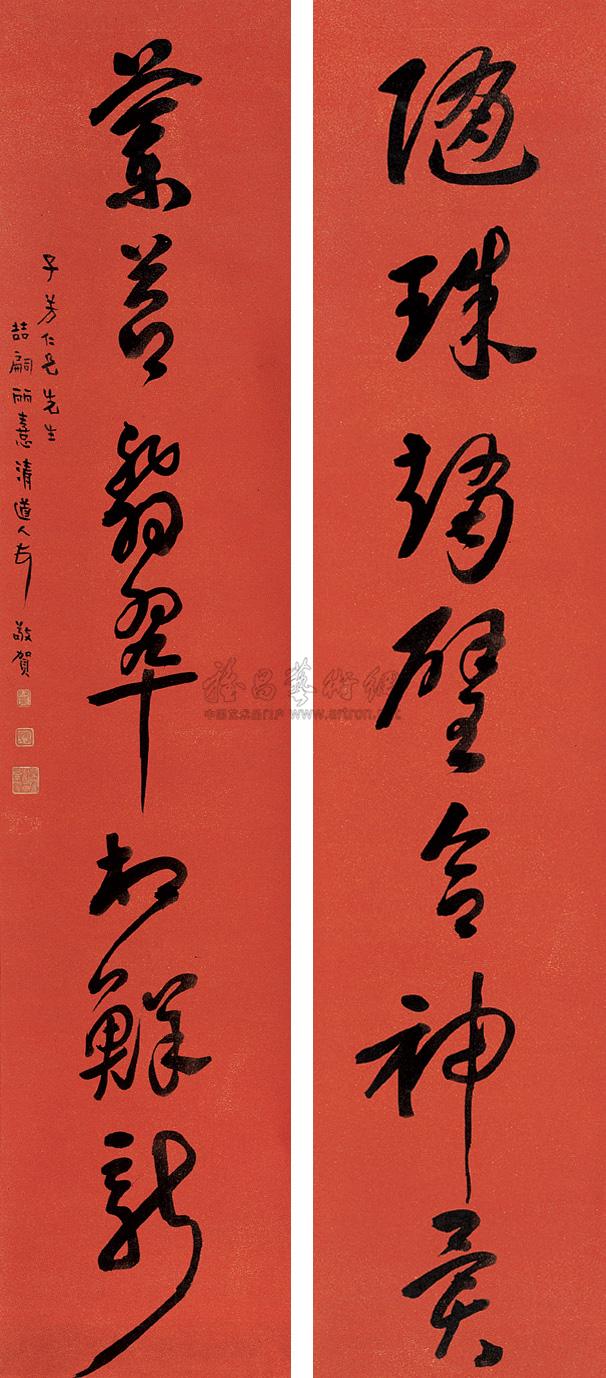 随珠赵璧合神異
兰苕翡翠相鲜新
子芳仁兄先生
喆嗣丽憙清道人 敬贺
雅昌藝術網
中国艺术品门户 www.artron.net